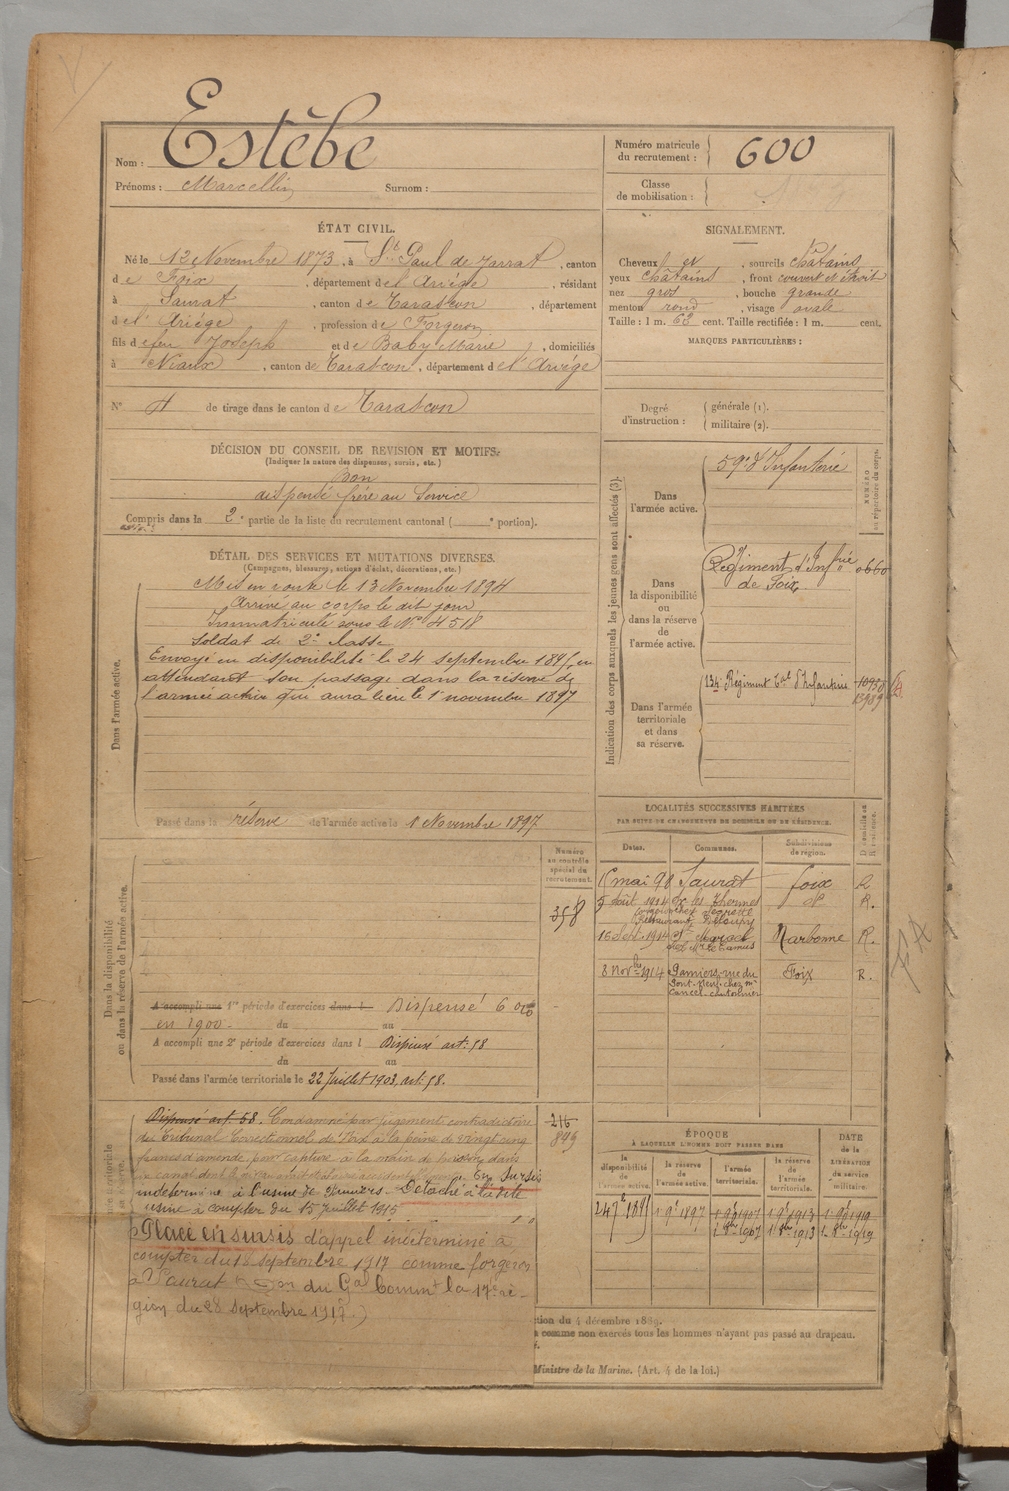 Nom : Estèbe
Prénoms : Marcellin Surnom :
Numéro matricule du recrutement : 600
Classe de mobilisation :
ÉTAT CIVIL.
Né le 12 Novembre 1873, à St Paul de Jarrat, canton
de Foix, département de l'Ariège, résidant
à Saurat, canton de Tarascon, département
de l'Ariège, profession de Forgeron
fils de feu Joseph et de Baby Marie, domiciliés
à Niaux, canton de Tarascon, département de l'Ariège
N° de tirage dans le canton de Tarascon
SIGNALEMENT.
Cheveux et, sourcils châtains
yeux châtains, front couvert et étroit
nez gros, bouche grande
menton rond, visage ovale
Taille : 1 m. 63 cent. Taille rectifiée : 1 m. cent.
MARQUES PARTICULIÈRES :
Degré d'instruction : générale (1). militaire (2).
DÉCISION DU CONSEIL DE REVISION ET MOTIFS.
(Indiquer la nature des dispenses, sursis, etc.)
Bon
dispensé frère au Service
Compris dans la 2e partie de la liste du recrutement cantonal ( e portion).
DÉTAIL DES SERVICES ET MUTATIONS DIVERSES.
(Campagnes, blessures, actions d'éclat, décorations, etc.)
Dans l'armée active.
Mis en route le 13 Novembre 1894
Arrivé au corps le dit jour,
Immatriculé sous le N° 4518
Soldat de 2e classe
Envoyé en disponibilité le 24 septembre 1895, en
attendant son passage dans la réserve de
l'armée active qui aura lieu le 1er novembre 1897
Passé dans la réserve de l'armée active le 1 Novembre 1897
Indication des corps auxquels les jeunes gens sont affectés (3).
Dans l'armée active.
59e d'Infanterie
NUMÉRO au répertoire du corps.
Dans la disponibilité ou dans la réserve de l'armée active.
Régiment d'Infrie de Foix
0660
Dans l'armée territoriale et dans sa réserve.
134e Régiment Tal d'Infanterie
LOCALITÉS SUCCESSIVES HABITÉES
PAR SUITE DE CHANGEMENTS DE DOMICILE OU DE RÉSIDENCE.
Dates. Communes. Subdivisions de région. D domicile ou R résidence.
mai 98 Saurat Foix R
5 août 1914 Ax les Thermes d° R.
16 Sept. 1914 St Marcel Narbonne R.
8 Novbre 1914 Pamiers, rue du Foix R.
Pont-neuf, chez Mr
Cancel, chutolinier
Dans la disponibilité ou dans la réserve de l'armée active.
Numéro au contrôle spécial du recrutement.
358
A accompli une 1re période d'exercices dans l Dispensé
en 1900. du au
A accompli une 2e période d'exercices dans l Dispensé art: 58
du au
Passé dans l'armée territoriale le 22 Juillet 1903, art: 58.
Dispensé art. 58. Condamné par jugement contradictoire
du Tribunal Correctionnel de Foix à la peine de vingt cinq
francs d'amende, pour capture à la main de poisson dans
En Sursis
indéterminé à l'usine de Pamiers. Détaché à la dite
usine à compter du 15 Juillet 1915
Placé en sursis d'appel indéterminé à
compter du 18 septembre 1917 comme forgeron
à Saurat du Gal Commt la 17e ré-
gion du 28 septembre 1917.)
216
849
ÉPOQUE
À LAQUELLE L'HOMME DOIT PASSER DANS
la disponibilité de l'armée active. la réserve de l'armée active. l'armée territoriale. la réserve de l'armée territoriale. DATE de la LIBÉRATION du service militaire.
24 7bre 1895 1 9bre 1897 1 9bre 1907 1 9bre 1913 1 9bre 1919
1 8bre 1907 1 8bre 1913 1 8bre 1919
tion du 4 décembre 1889.
comme non exercés tous les hommes n'ayant pas passé au drapeau.
Ministre de la Marine. (Art. 4 de la loi.)